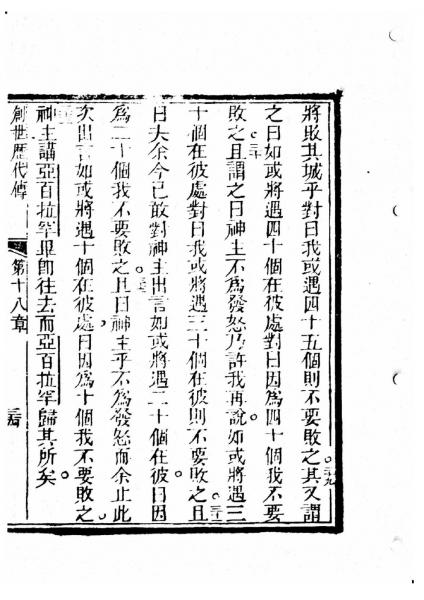 將敗其城乎對曰我或遇四十五個則不要敗之。二十九其又謂
之曰如或將遇四十個在彼處對曰因爲四十個我不要
敗之。三十且謂之曰神主不爲發怒乃許我再說如或將遇三
十個在彼處對曰我或將遇三十個在彼則不要敗之。三十一且
曰夫余今已敢對神主出言如或將遇二十個在彼曰因
爲二十個我不要敗之。三十二且曰神主乎不爲發怒而余止此
次出言如或將遇十個在彼處曰因爲十個我不要敗之。
三十三神主講亞百拉罕畢卽往去而亞百拉罕歸其所矣。
創世歷代傳 第十八章